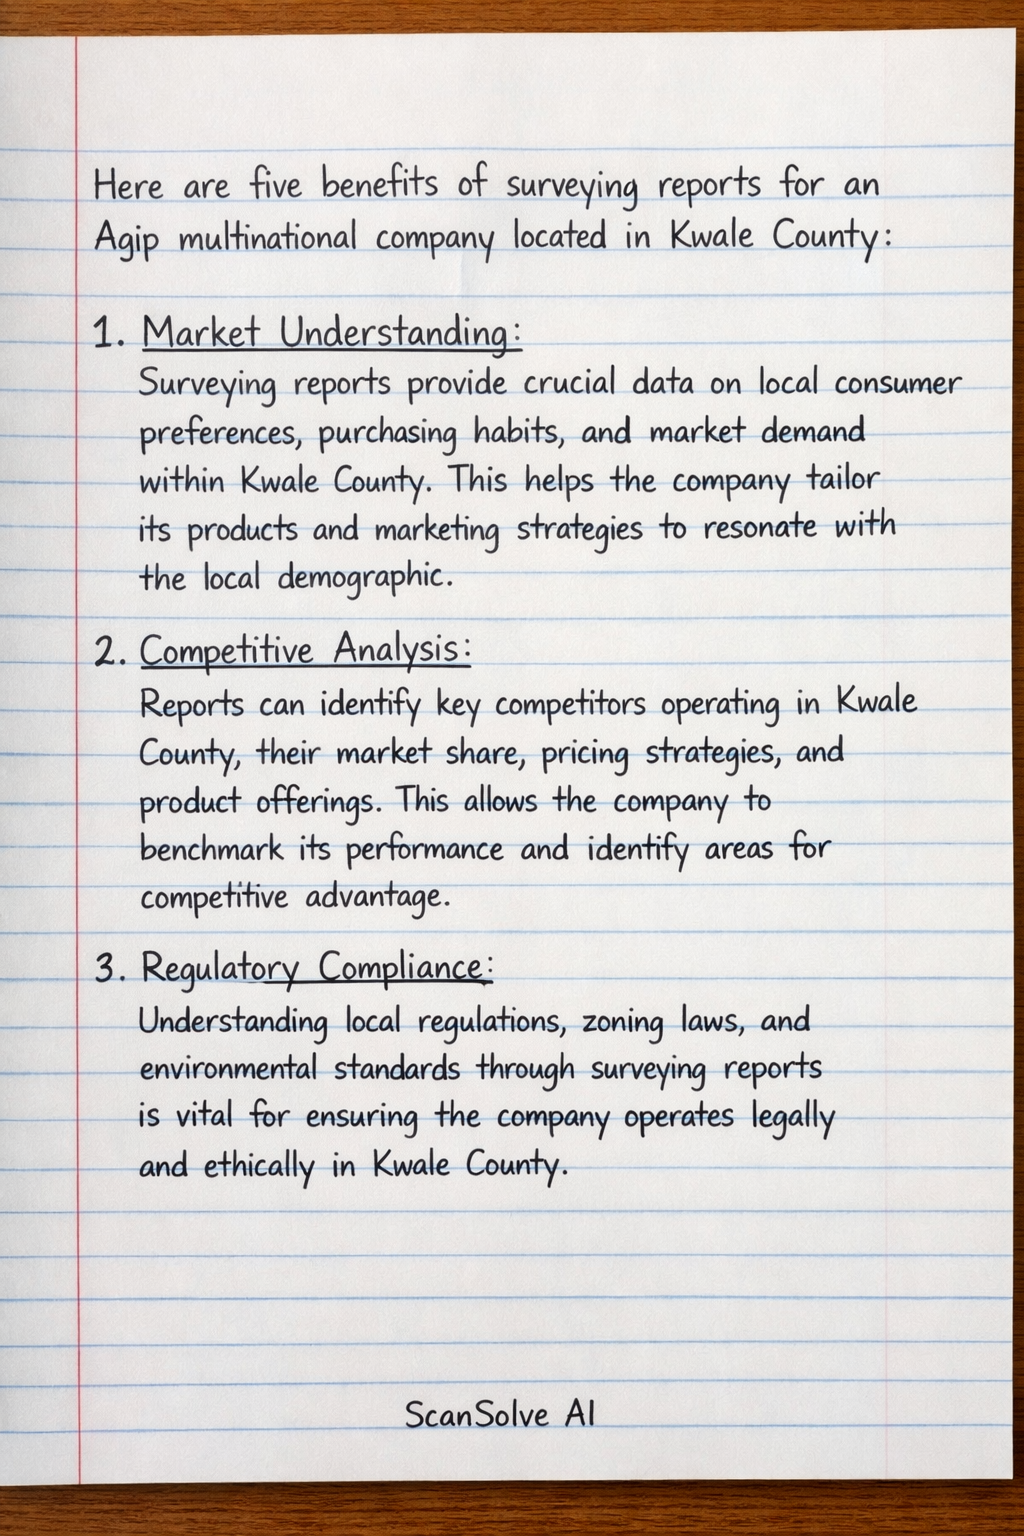 Here are five benefits of surveying reports for an
Agip multinational company located in Kwale County:
1. Market Understanding:
Surveying reports provide crucial data on local consumer
preferences, purchasing habits, and market demand
within Kwale County. This helps the company tailor
its products and marketing strategies to resonate with
the local demographic.
2. Competitive Analysis:
Reports can identify key competitors operating in Kwale
County, their market share, pricing strategies, and
product offerings. This allows the company to
benchmark its performance and identify areas for
competitive advantage.
3. Regulatory Compliance:
Understanding local regulations, zoning laws, and
environmental standards through surveying reports
is vital for ensuring the company operates legally
and ethically in Kwale County.
ScanSolve AI